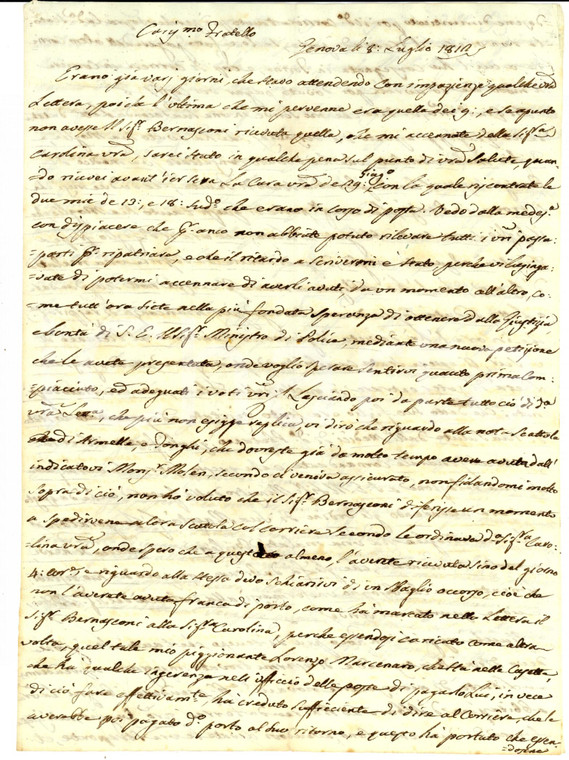 Cariss.mo Fratello
Genova li 8: Luglio 1810
Erano già varj giorni, che stavo attendendo con impazienza qualche vra
Lettera, poiché l'ultima che mi pervenne era quella dei 9:, e se appunto
non avesse il Sig.r Bernasconi ricevuta quella, che mi accennate della Sig.ra
Carolina vra, sarei stato in qualche pena sul punto di vra Salute, quan-
do ricevei avant'ier sera La Cara vra de 29: Giug.o con la quale riscontrate le
due mie de 13: e 18: sud.o che erano in corso di posta. Vedo dalla medes.a
con dispiacere che p. anco non abbiate potuto rilevare tutti i vri passa-
=porti p. ripatriare, e che il ritardo a scrivermi è stato perche vi lusinga-
vate di potermi accennare di averli avuti da un momento all'altro, co-
me tutt'ora siete nella più fondata speranza di ottenere dalla Giustizia
e bontà di S. E. Il Sig.r Ministro di Polizia, mediante una nuova petizione
che le avete presentata, onde voglio sperare sentirvi quanto prima Com-
piaciuto, ed adeguati i voti vri. Lasciando poi da parte tutto ciò di d.a
vra Lett.a, che più non esigge replica, vi dirò che riguardo alla nota Scattola
di Armelle, e Fonghi, che dovreste già da molto tempo avere avuta dall'
indicatovi Mons.r Mosen, secondo ci veniva assicurato, non fidandomi molto
sopra di ciò, non ho voluto che il Sig.r Bernasconi diferisse un momento
a spedirvene altra Scatola col Corriere secondo le ordinava d.a Sig.ra Caro-
lina vra, onde spero che a quest' almeno, l'avrete ricevuta sino del giorno
4: cor.e e riguardo alla stessa devo schiarirvi di un sbaglio occorso, cioè che
non l'averete avuta franca di porto, come ha marcato nella Lettera il
Sig.r Bernasconi alla Sig.ra Carolina, perche essendosi caricato come altra
volta, quel tale mio piggionante Lorenzo Marcenaro, che sta nella Casetta,
che ha qualche ingerenza nell'ufficio delle poste di pagarlo Lui, in vece
di ciò fare effettivam.te, ha creduto sufficiente di dire al Corriere, che le
averebbe poi pagato d.o porto al suo ritorno, e questo ha portato che essen-
=dosene